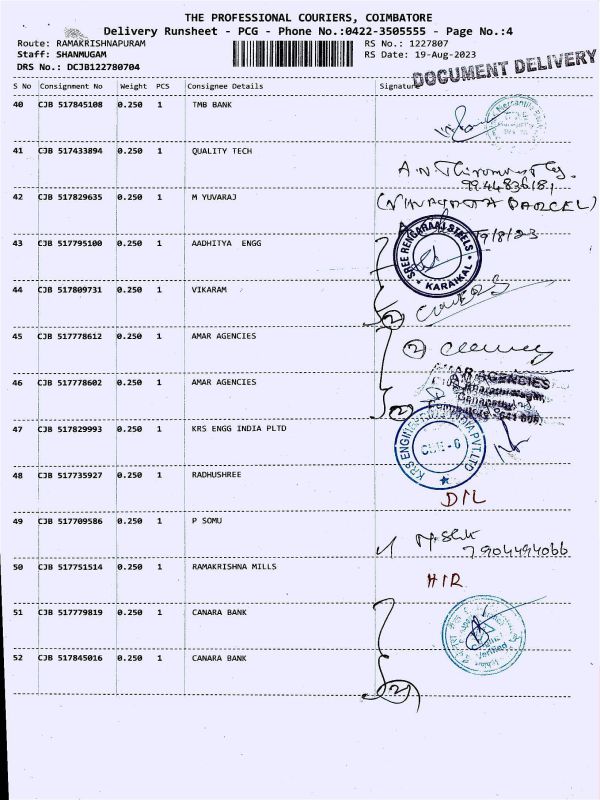 THE PROFESSIONAL COURIERS, COIMBATORE
Delivery Runsheet - PCG - Phone No.:0422-3505555 - Page No.:4
Route: RAMAKRISHNAPURAM RS No.: 1227807
Staff: SHANMUGAM RS Date: 19-Aug-2023
DRS No.: DCJB122780704
DOCUMENT DELIVERY
S No Consignment No Weight PCS Consignee Details Signature
40 CJB 517845108 0.250 1 TMB BANK
41 CJB 517433894 0.250 1 QUALITY TECH
9944836181
42 CJB 517829635 0.250 1 M YUVARAJ
(VINAYAGA PARCEL)
19/8/23
43 CJB 517795100 0.250 1 AADHITYA ENGG
SREE RENGARAAJ STEELS
KARAIKAL
44 CJB 517809731 0.250 1 VIKARAM
2
45 CJB 517778612 0.250 1 AMAR AGENCIES
2
46 CJB 517778602 0.250 1 AMAR AGENCIES
AMAR AGENCIES
2
47 CJB 517829993 0.250 1 KRS ENGG INDIA PLTD
KRS ENGINEERING INDIA PVT.LTD
CBE-6
48 CJB 517735927 0.250 1 RADHUSHREE
D/L
49 CJB 517709586 0.250 1 P SOMU
7904494066
50 CJB 517751514 0.250 1 RAMAKRISHNA MILLS
H/R
51 CJB 517779819 0.250 1 CANARA BANK
52 CJB 517845016 0.250 1 CANARA BANK
2